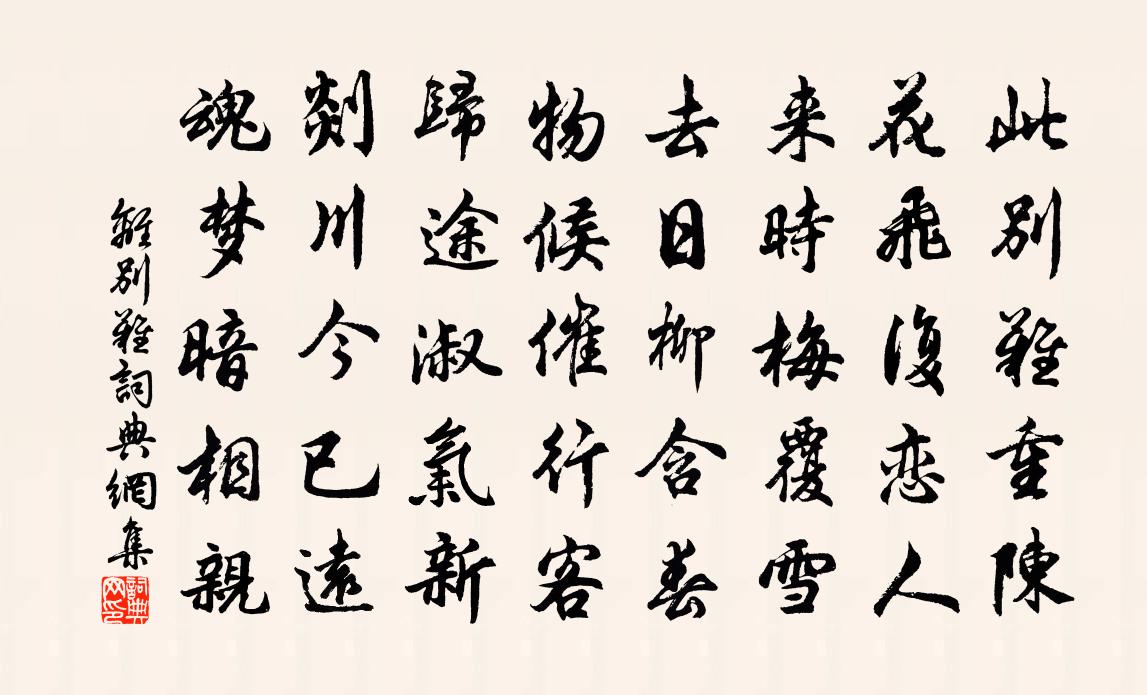 此别難重陳
花飛復恋人
来時梅覆雪
去日柳含春
物候催行客
歸途淑氣新
剡川今已遠
魂梦暗相親
離别難詞典網集
詞典网印